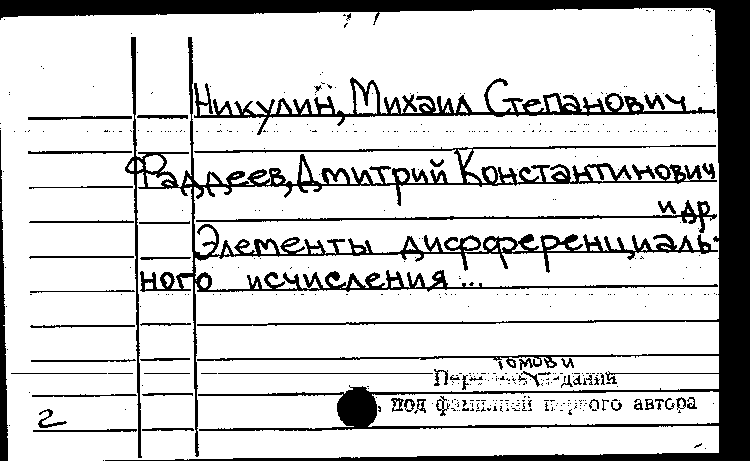 Никулин, Михаил Степанович.
Фаддеев, Дмитрий Константинович
и др.
Элементы дифференциаль-
ного исчисления ...
томов и
под фамилией первого автора
2